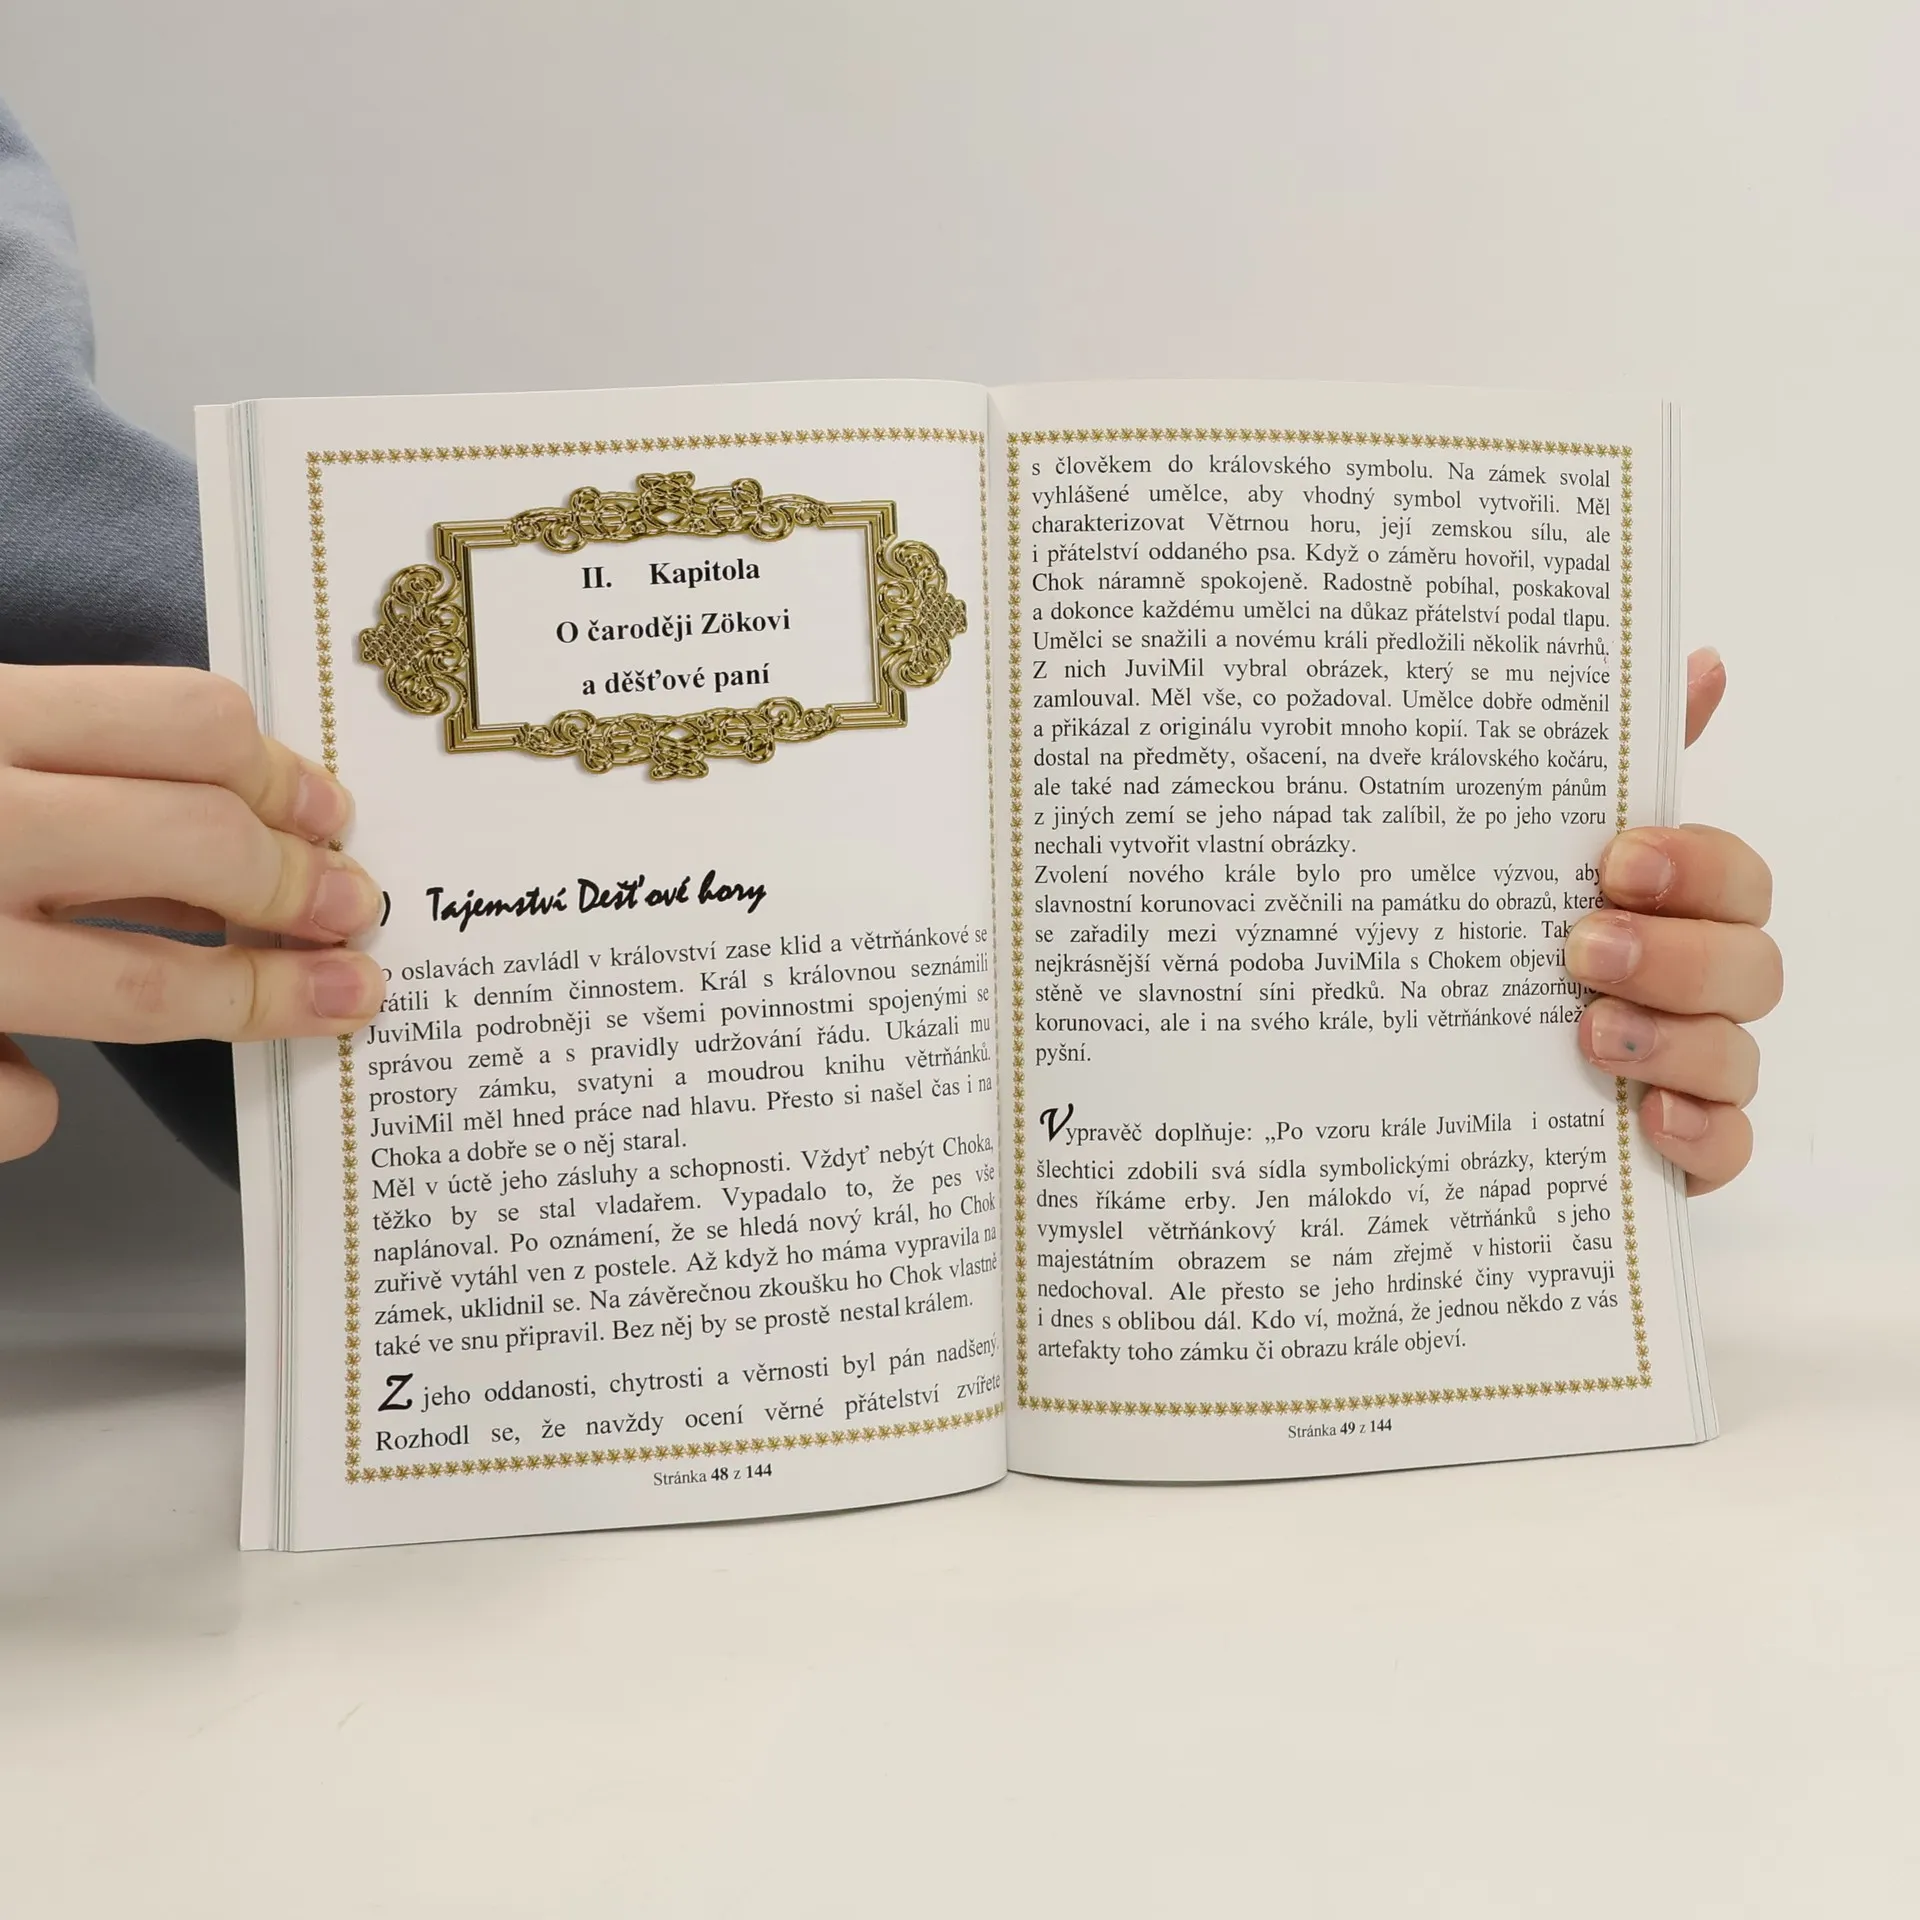 II. Kapitola
O čaroději Zökovi
a děšťové paní
) Tajemství Dešťové hory
oslavách zavládl v království zase klid a větrňánkové se
k denním činnostem. Král s královnou seznámili
JuviMila podrobněji se všemi povinnostmi spojenými se
správou země a s pravidly udržování řádu. Ukázali mu
prostory zámku, svatyni a moudrou knihu větrňánků.
JuviMil měl hned práce nad hlavu. Přesto si našel čas i na
Choka a dobře se o něj staral.
Měl v úctě jeho zásluhy a schopnosti. Vždyť nebýt Choka,
těžko by se stal vladařem. Vypadalo to, že pes vše
naplánoval. Po oznámení, že se hledá nový král, ho Chok
zuřivě vytáhl ven z postele. Až když ho máma vypravila na
zámek, uklidnil se. Na závěrečnou zkoušku ho Chok vlastně
také ve snu připravil. Bez něj by se prostě nestal králem.
Z jeho oddanosti, chytrosti a věrnosti byl pán nadšený.
Rozhodl se, že navždy ocení věrné přátelství zvířete
Stránka 48 z 144
s člověkem do královského symbolu. Na zámek svolal
vyhlášené umělce, aby vhodný symbol vytvořili. Měl
charakterizovat Větrnou horu, její zemskou sílu, ale
i přátelství oddaného psa. Když o záměru hovořil, vypadal
Chok náramně spokojeně. Radostně pobíhal, poskakoval
a dokonce každému umělci na důkaz přátelství podal tlapu.
Umělci se snažili a novému králi předložili několik návrhů.
Z nich JuviMil vybral obrázek, který se mu nejvíce
zamlouval. Měl vše, co požadoval. Umělce dobře odměnil
a přikázal z originálu vyrobit mnoho kopií. Tak se obrázek
dostal na předměty, ošacení, na dveře královského kočáru,
ale také nad zámeckou bránu. Ostatním urozeným pánům
z jiných zemí se jeho nápad tak zalíbil, že po jeho vzoru
nechali vytvořit vlastní obrázky.
Zvolení nového krále bylo pro umělce výzvou, aby
slavnostní korunovaci zvěčnili na památku do obrazů, které
se zařadily mezi významné výjevy z historie. Tak
nejkrásnější věrná podoba JuviMila s Chokem
stěně ve slavnostní síni předků. Na obraz
korunovaci, ale i na svého krále, byli větrňánkové
pyšní.
Vypravěč doplňuje: „Po vzoru krále JuviMila i ostatní
šlechtici zdobili svá sídla symbolickými obrázky, kterým
dnes říkáme erby. Jen málokdo ví, že nápad poprvé
vymyslel větrňánkový král. Zámek větrňánků s jeho
majestátním obrazem se nám zřejmě v historii času
nedochoval. Ale přesto se jeho hrdinské činy vypravuji
i dnes s oblibou dál. Kdo ví, možná, že jednou někdo z vás
artefakty toho zámku či obrazu krále objeví.
Stránka 49 z 144